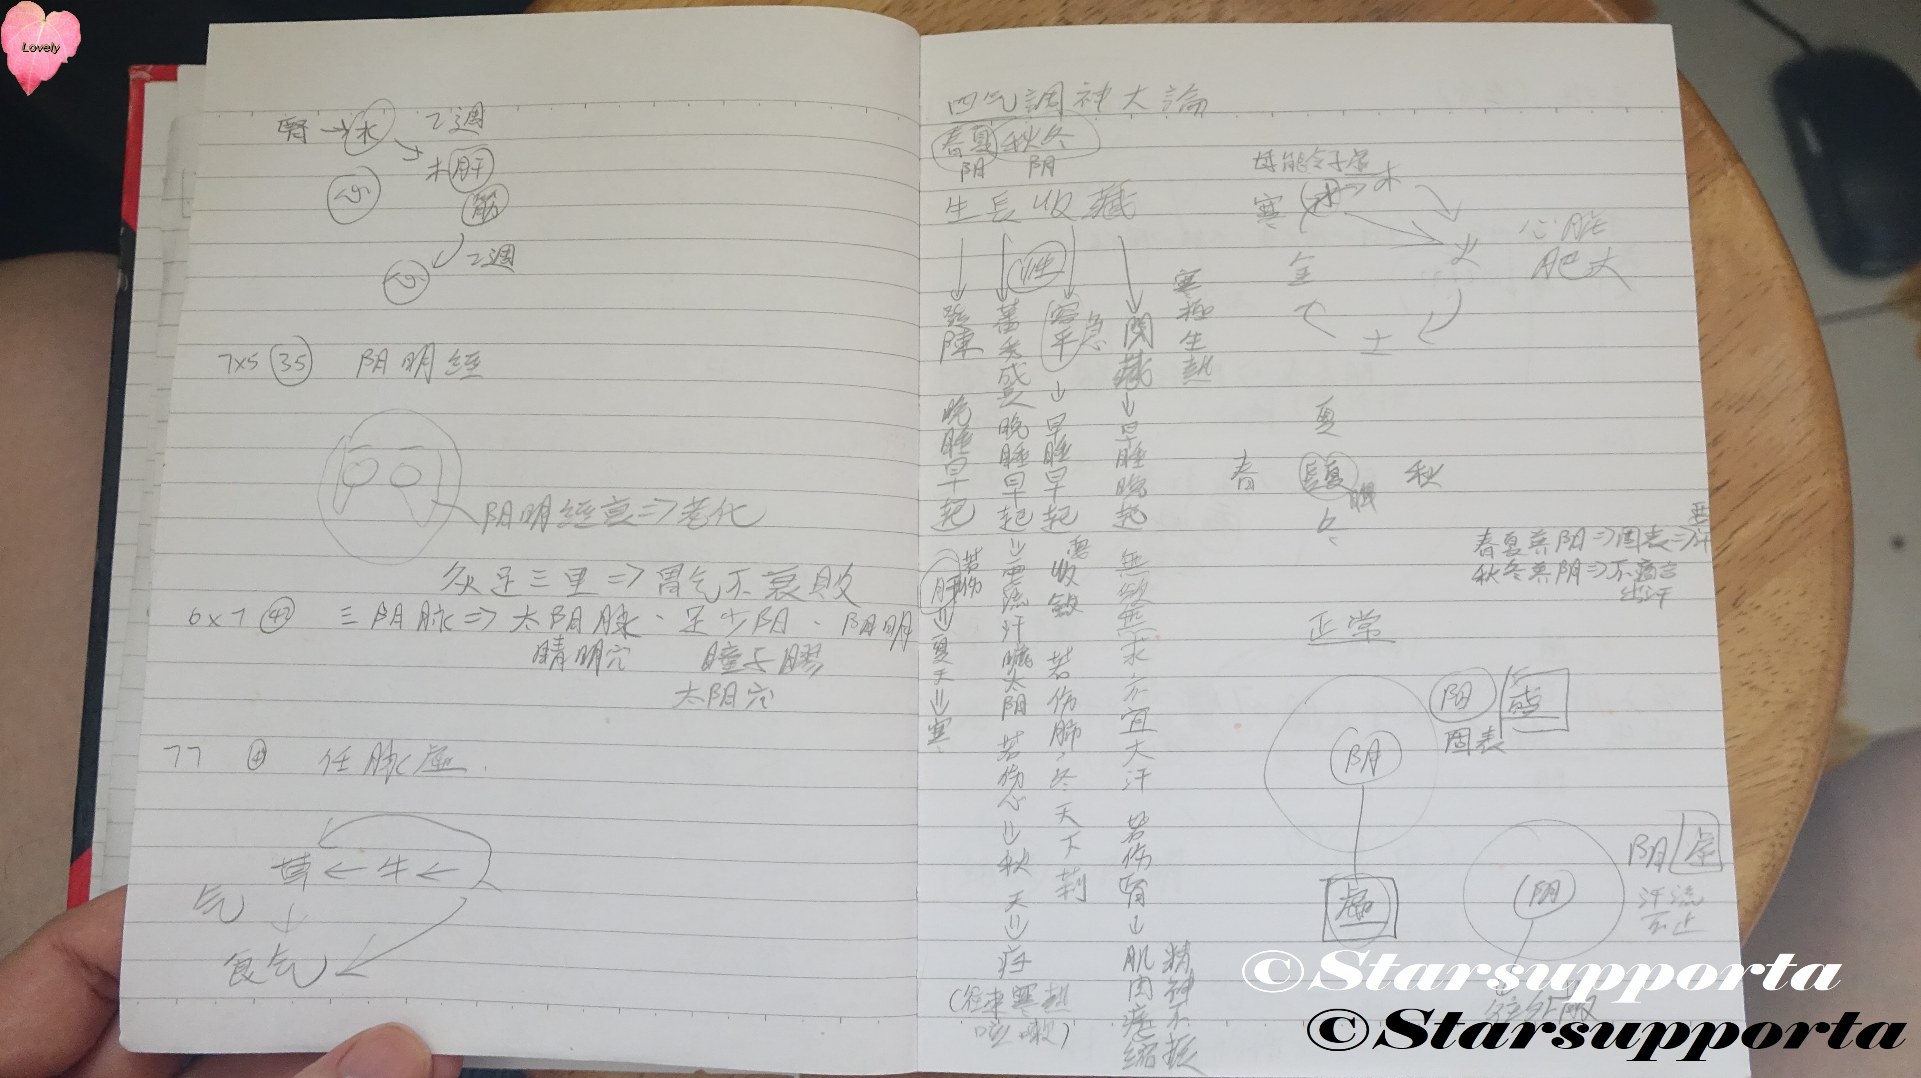 Lovely
腎→水
乙週
木肝
筋
乙週
7x5 35 阳明經
阳明經衰⇒老化
灸足三里⇒胃气不衰敗
6x7 42 三阳脉⇒太阳脉、足少阳、阳明
睛明穴 瞳子膠
太阳穴
77 任脉虛.
草←牛←
气
食气
四气調神大論
春夏秋冬
阳 阴
生長收藏
發陳
晚睡早起
若伤肝⇒夏天⇒寒
蕃秀
晚睡早起⇒要流汗
太阳
若伤心⇒秋天⇒疟
(往來寒熱
咳嗽)
容平
急
早睡早起
要收斂
若伤肺,冬天下利
閉藏
早睡晚起
無欲無求亦宜大汗
若伤腎→肌肉萎縮
精神不振
寒極生熱
母能令子虛
寒 水→木
火
心脏
肥大
金
土
夏
春 長夏 秋
冬
春夏养阳⇒固表⇒
秋冬养阴⇒不適宜
出汗
正常
阴
阳
固表
虛
阴虛
汗流
不止
阴
©Starsupporta
©Starsupporta